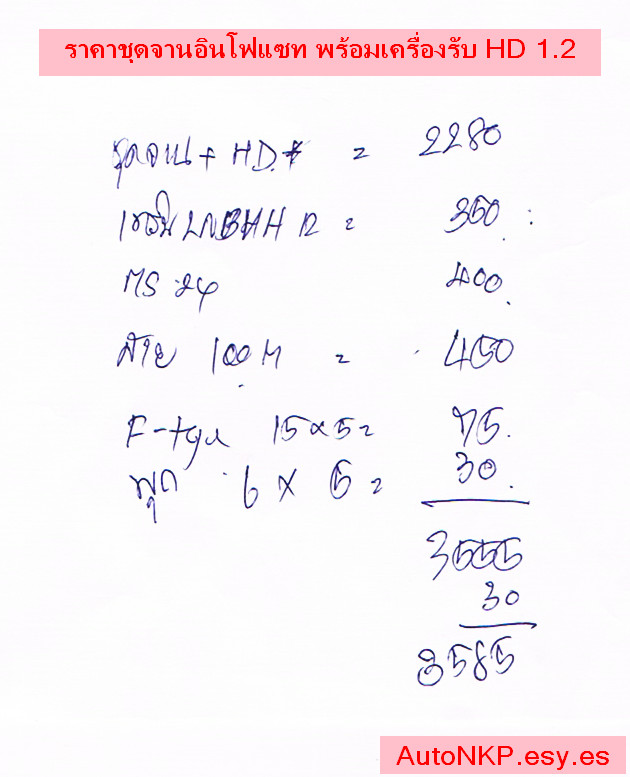 ราคาชุดจานอินโฟแซท พร้อมเครื่องรับ HD 1.2
ชุดจาน + HD. = 2280
LNB = 350
MS 24 400
สาย 100 M = 450
F-type 15 x 5 = 75.
พุก 6 x 5 = 30.
3555
30
3585
AutoNKP.esy.es